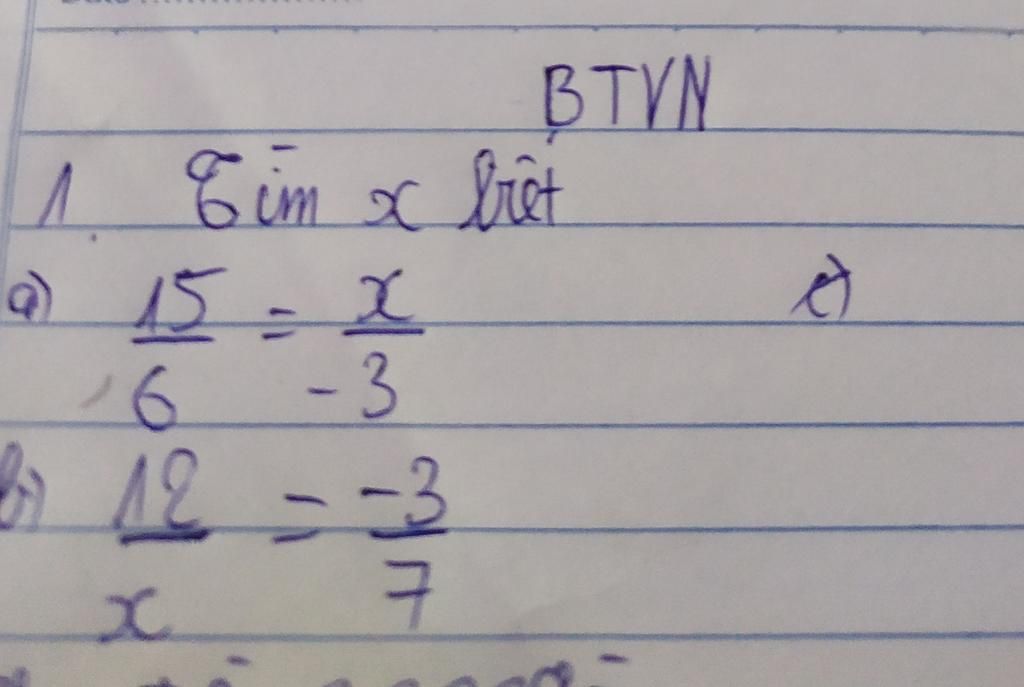 BTVN
1. Tìm x biết
a) 15/6 = x/-3
c)
b) 12/x = -3/7